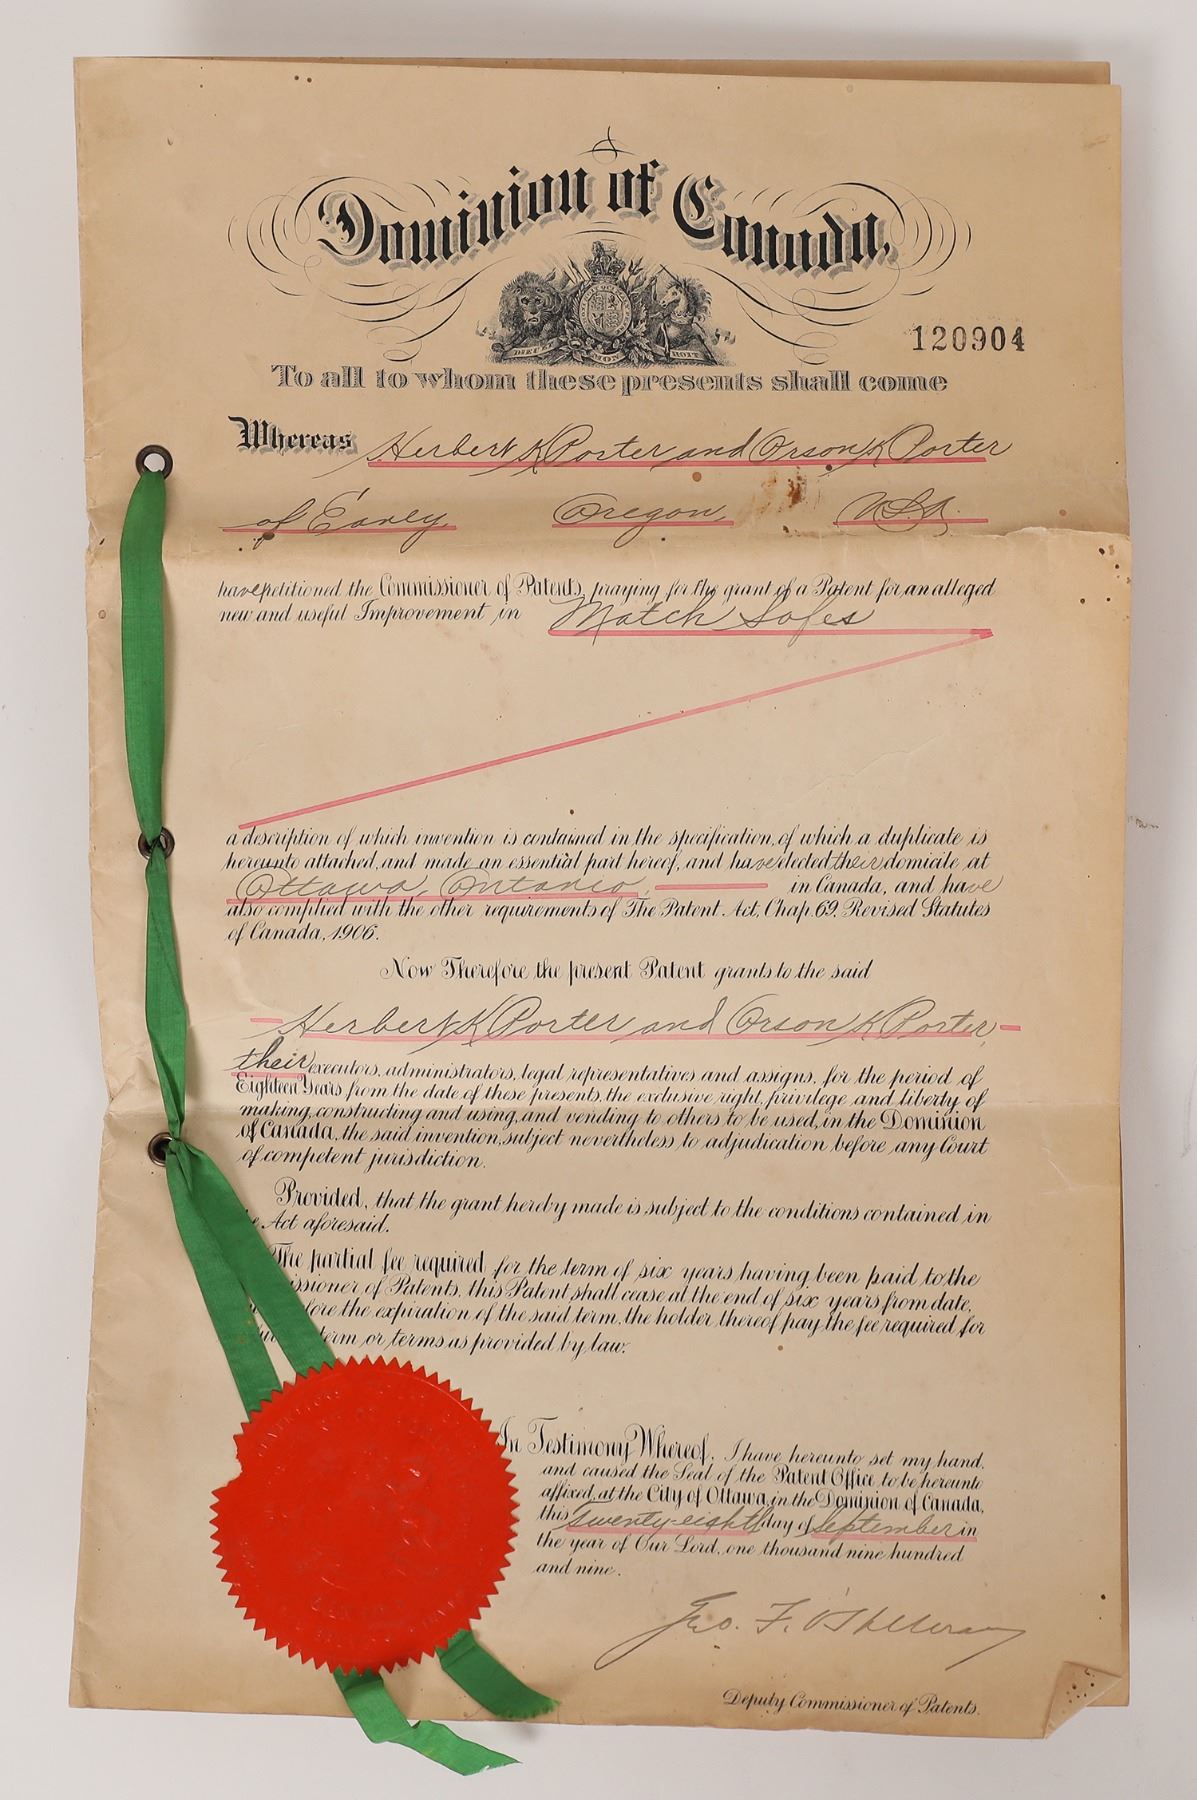 Dominion of Canada.
DIEU ET MON DROIT
120904
To all to whom these presents shall come
Whereas Herbert K Porter and Orson K Porter
of Eanly Oregon, USA.
have petitioned the Commissioner of Patents, praying for the grant of a Patent for an alleged
new and useful Improvement in Match Safes
a description of which invention is contained in the specification, of which a duplicate is
hereunto attached, and made an essential part hereof, and have elected their domicile at
Ottawa, Ontario, in Canada, and have
also complied with the other requirements of The Patent Act, Chap. 69, Revised Statutes
of Canada, 1906.
Now Therefore the present Patent grants to the said
Herbert K Porter and Orson K Porter,
their executors, administrators, legal representatives and assigns, for the period of
Eighteen Years from the date of these presents, the exclusive right, privilege and liberty of
making, constructing and using, and vending to others to be used, in the Dominion
of Canada, the said invention, subject nevertheless to adjudication before any Court
of competent jurisdiction.
Provided, that the grant hereby made is subject to the conditions contained in
e Act aforesaid.
The partial fee required for the term of six years having been paid to the
issioner of Patents, this Patent shall cease at the end of six years from date,
fore the expiration of the said term, the holder thereof pay the fee required for
term or terms as provided by law.
In Testimony Whereof, I have hereunto set my hand,
and caused the Seal of the Patent Office to be hereunto
affixed, at the City of Ottawa, in the Dominion of Canada,
this twenty-eighth day of September in
the year of Our Lord, one thousand nine hundred
and nine.
Geo. F. O'Halloran
Deputy Commissioner of Patents.